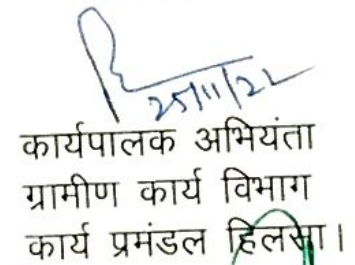 25/11/22
कार्यपालक अभियंता
ग्रामीण कार्य विभाग
कार्य प्रमंडल हिलसा।